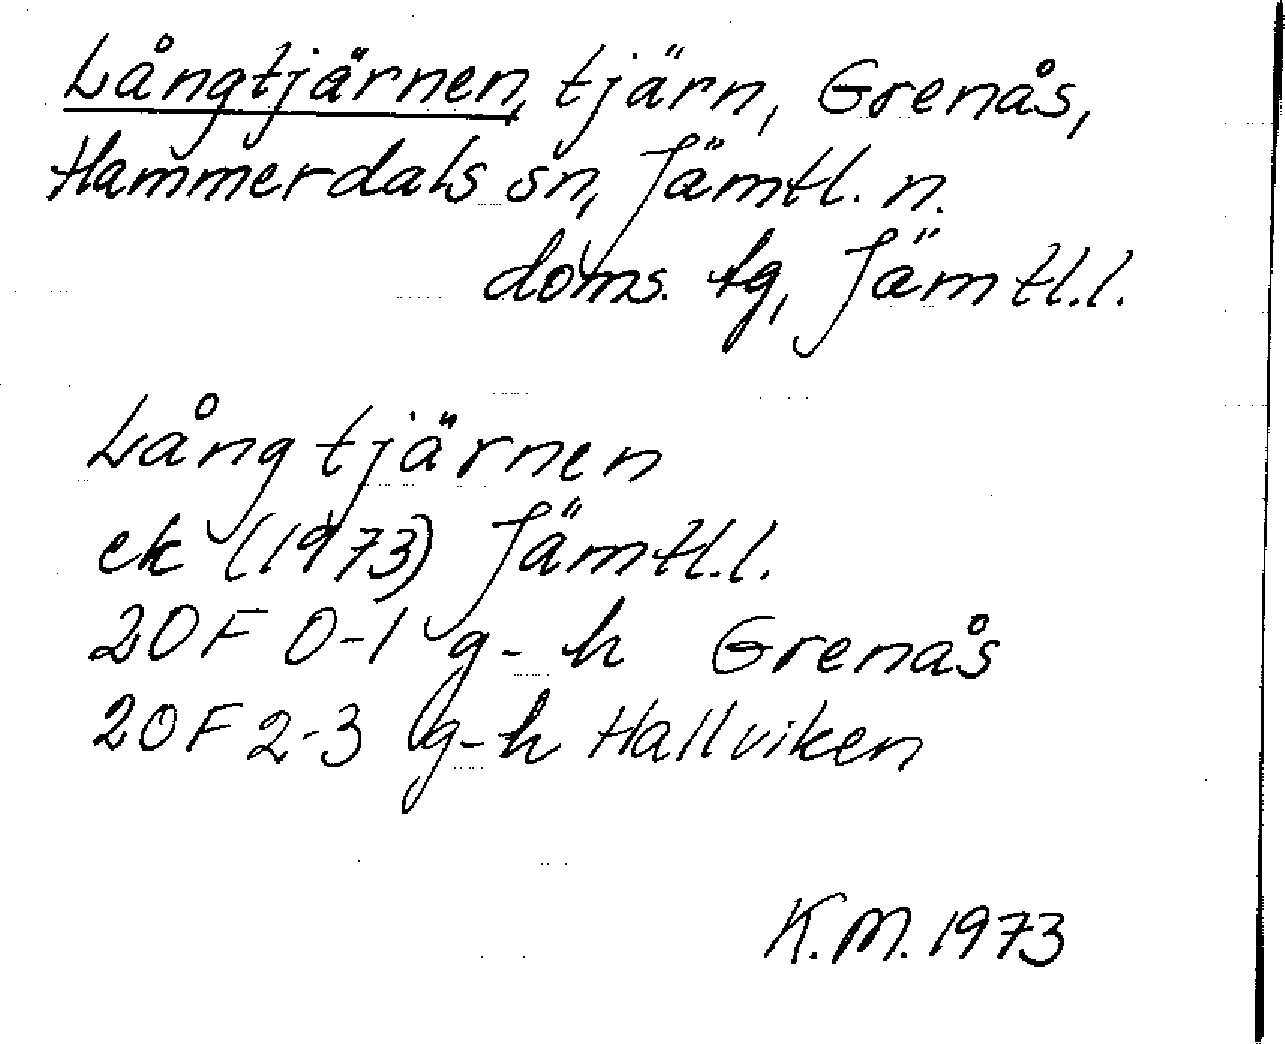 Långtjärnen, tjärn, Grenås,
Hammerdals sn, Jämtl. n.
doms. tg, Jämtl.l.
Långtjärnen
ek (1973) Jämtl.l.
20F 0-1 g-h Grenås
20F 2-3 g-h Hallviken
K.M. 1973